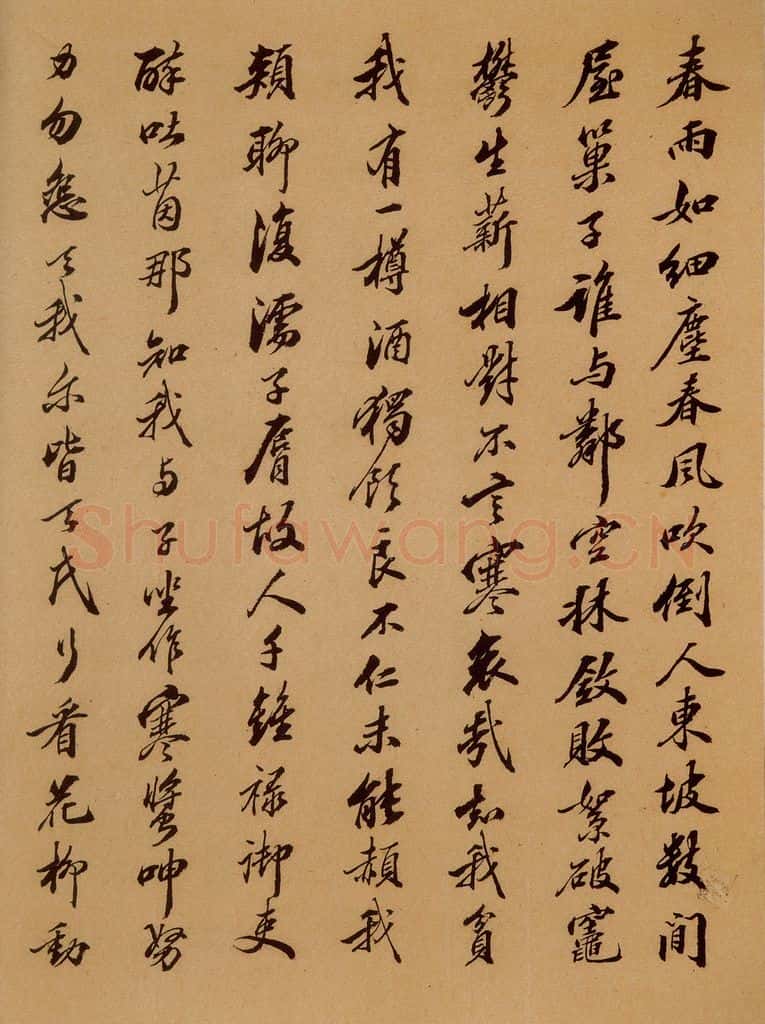 春雨如细塵春風吹倒人東坡数间
屋巢子誰与鄰空牀斂敗絮破竈
鬱生薪相對不言寒哀哉知我貧
我有一樽酒獨飲良不仁未能赬我
頰聊復濡子脣故人千鍾禄御吏
醉吐茵那知我与子坐作寒螿呻努
力勿怨天我尓皆天民行看花柳動
Shufawang.CN